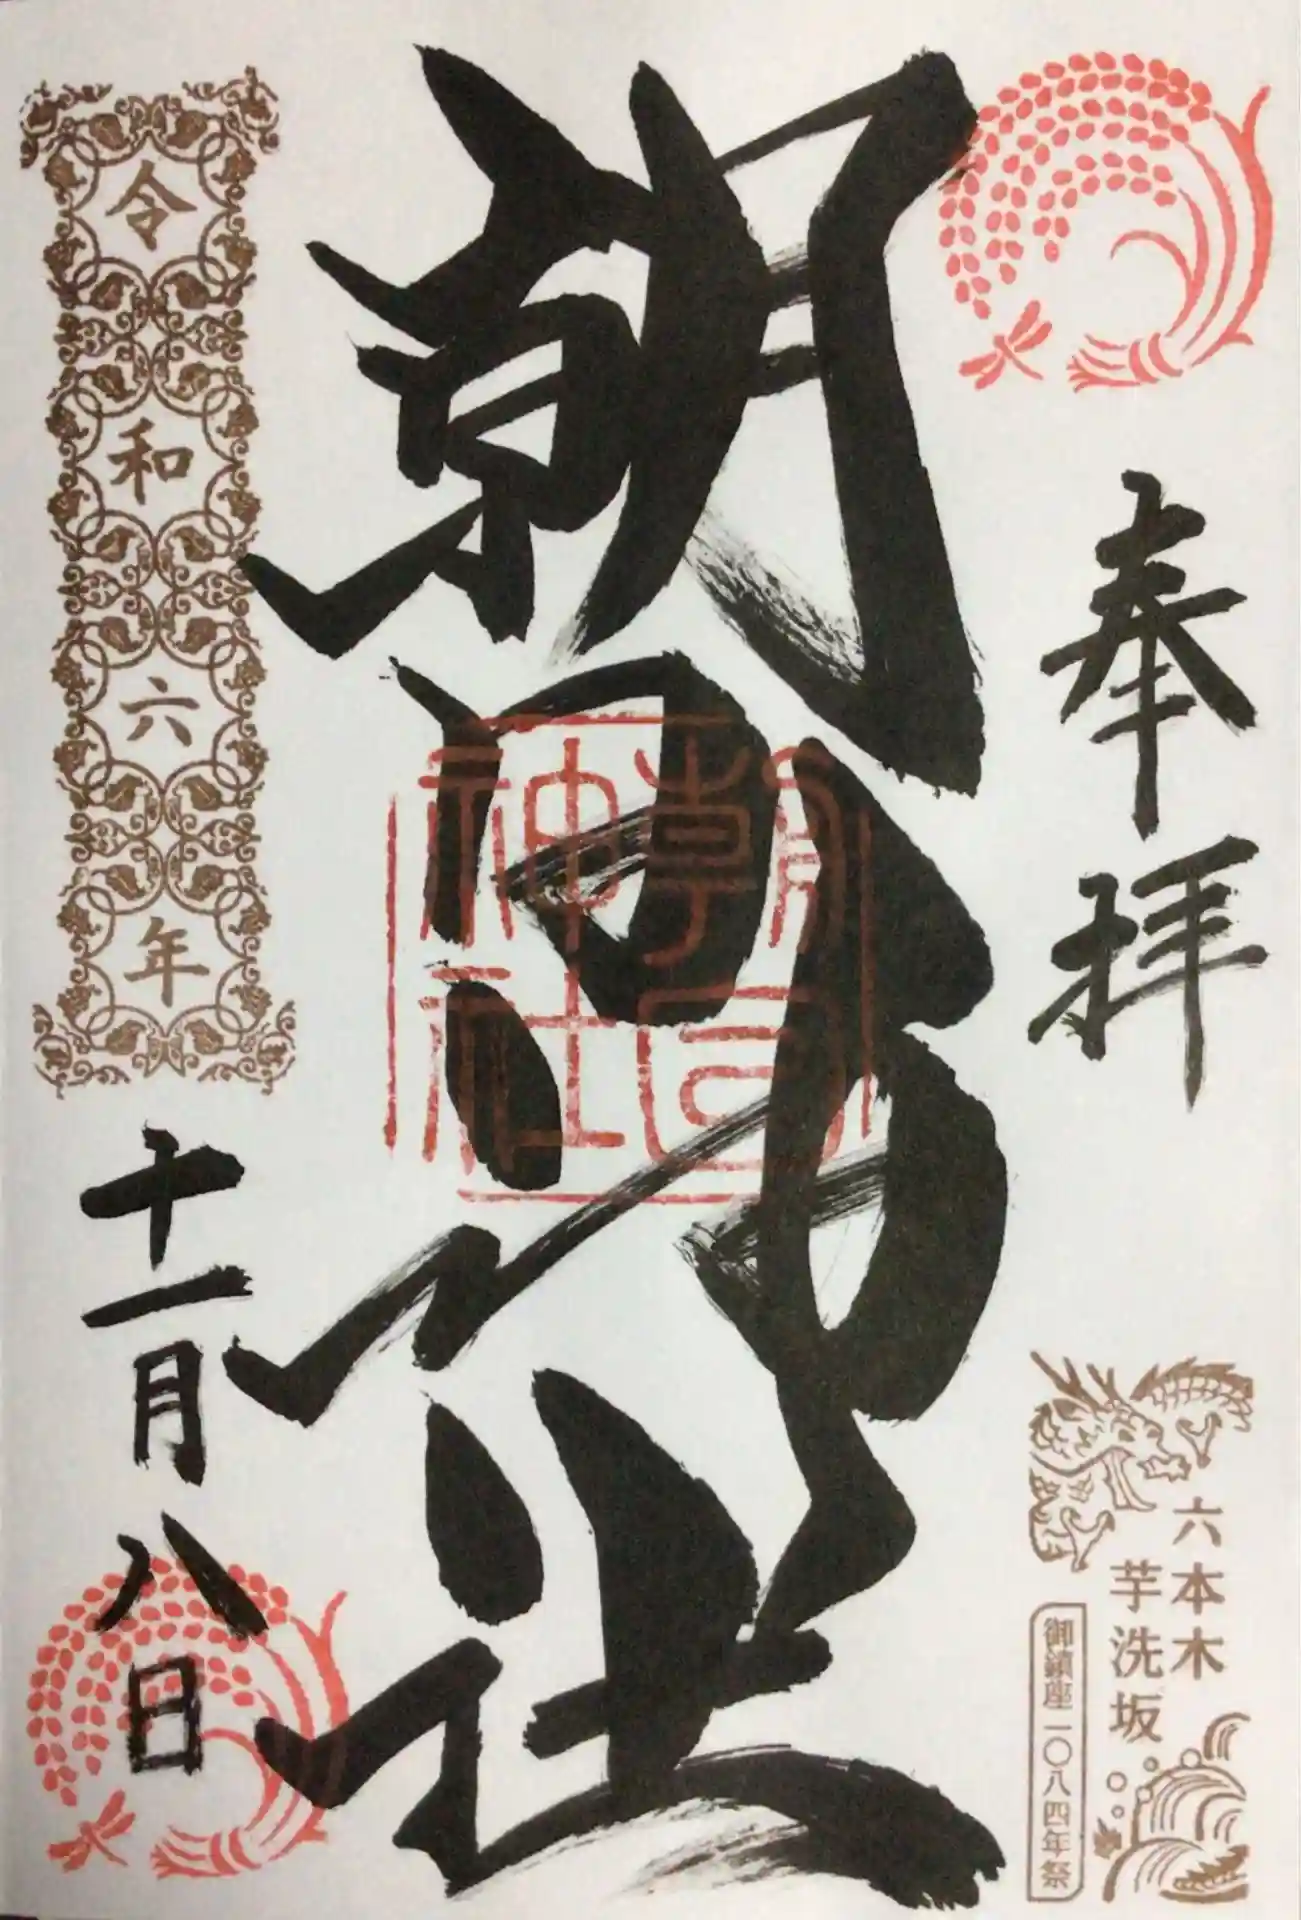 奉拝
六本木
芋洗坂
御鎮座一〇八四年祭
朝日神社
朝日
神社
令和六年
十一月八日